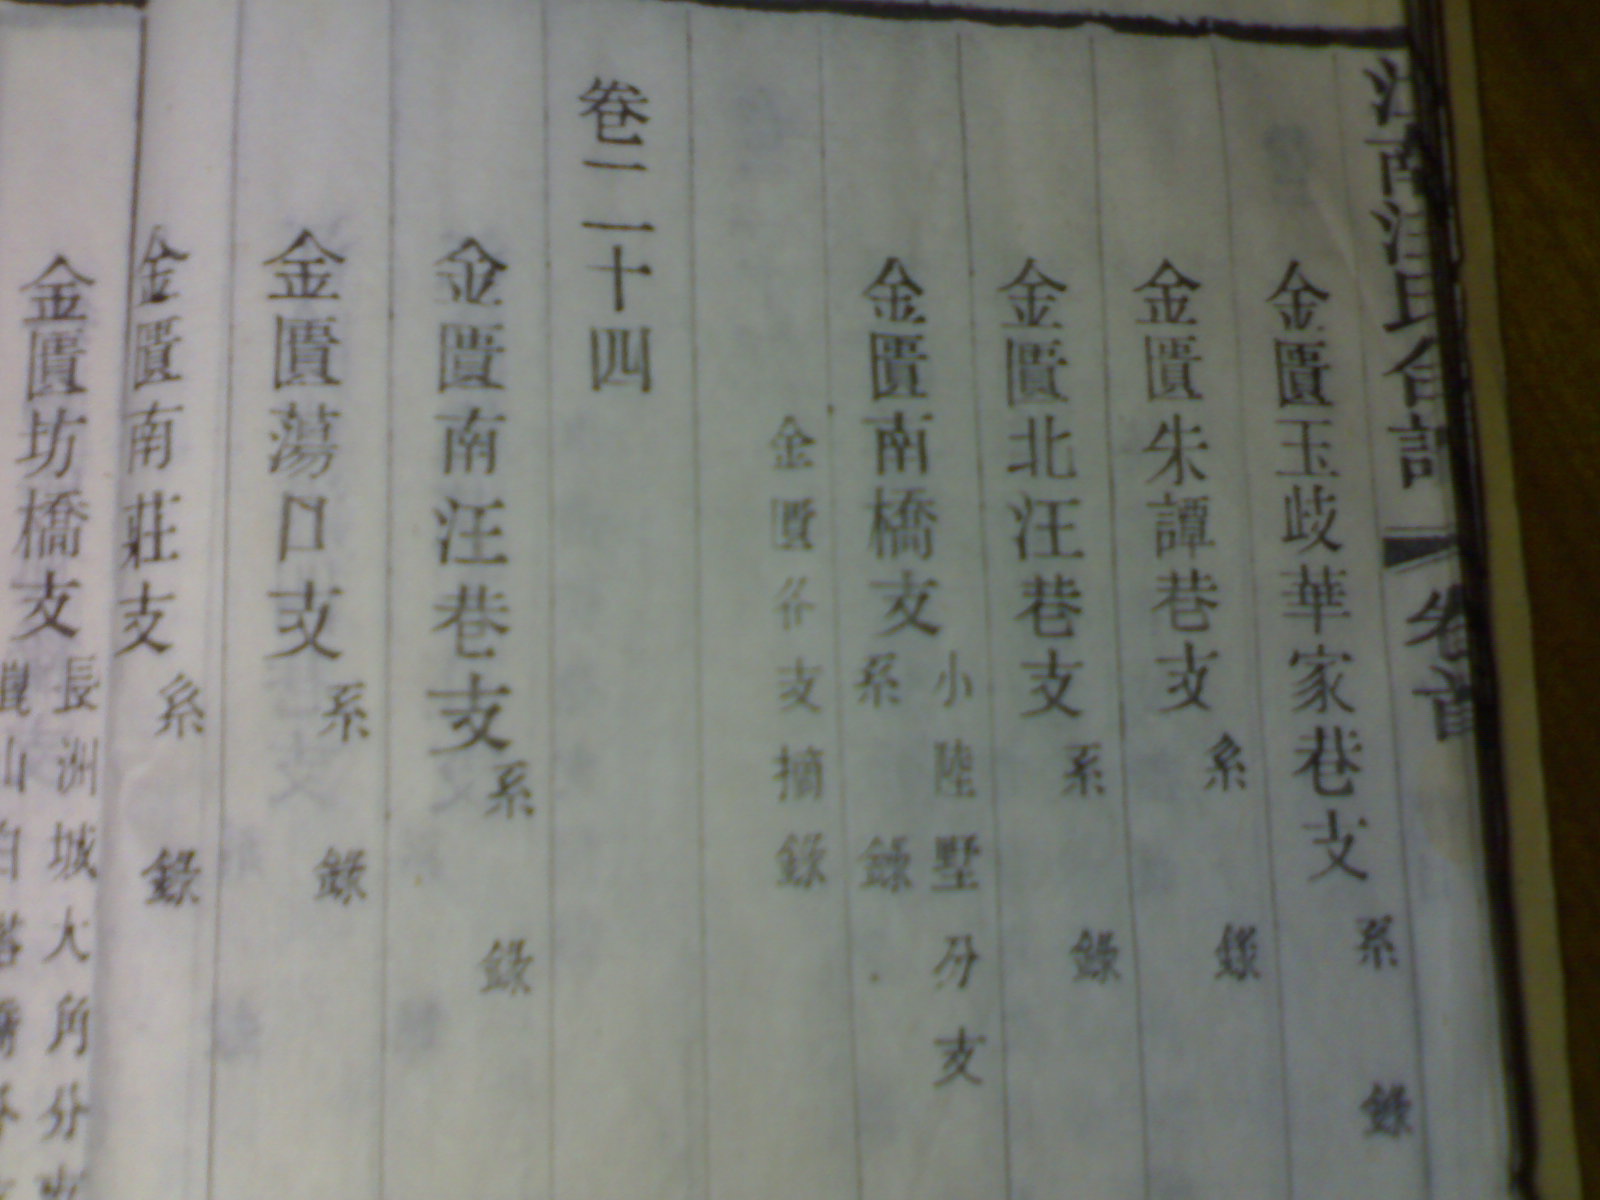 金匱玉歧華家巷支系錄
金匱朱譚巷支系錄
金匱北汪巷支系錄
金匱南橋支小陸墅分支系錄
金匱各支摘錄
卷二十四
金匱南汪巷支系錄
金匱蕩口支系錄
金匱南莊支系錄
金匱坊橋支長洲城大角分